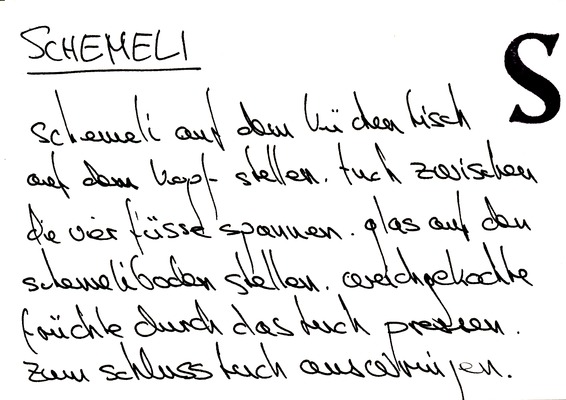 SCHEMELI
S
schemeli auf dem küchentisch
auf dem kopf stellen. tuch zwischen
die vier füsse spannen. glas auf den
schemeliboden stellen. weichgekochte
früchte durch das tuch pressen.
zum schluss tuch auswringen.